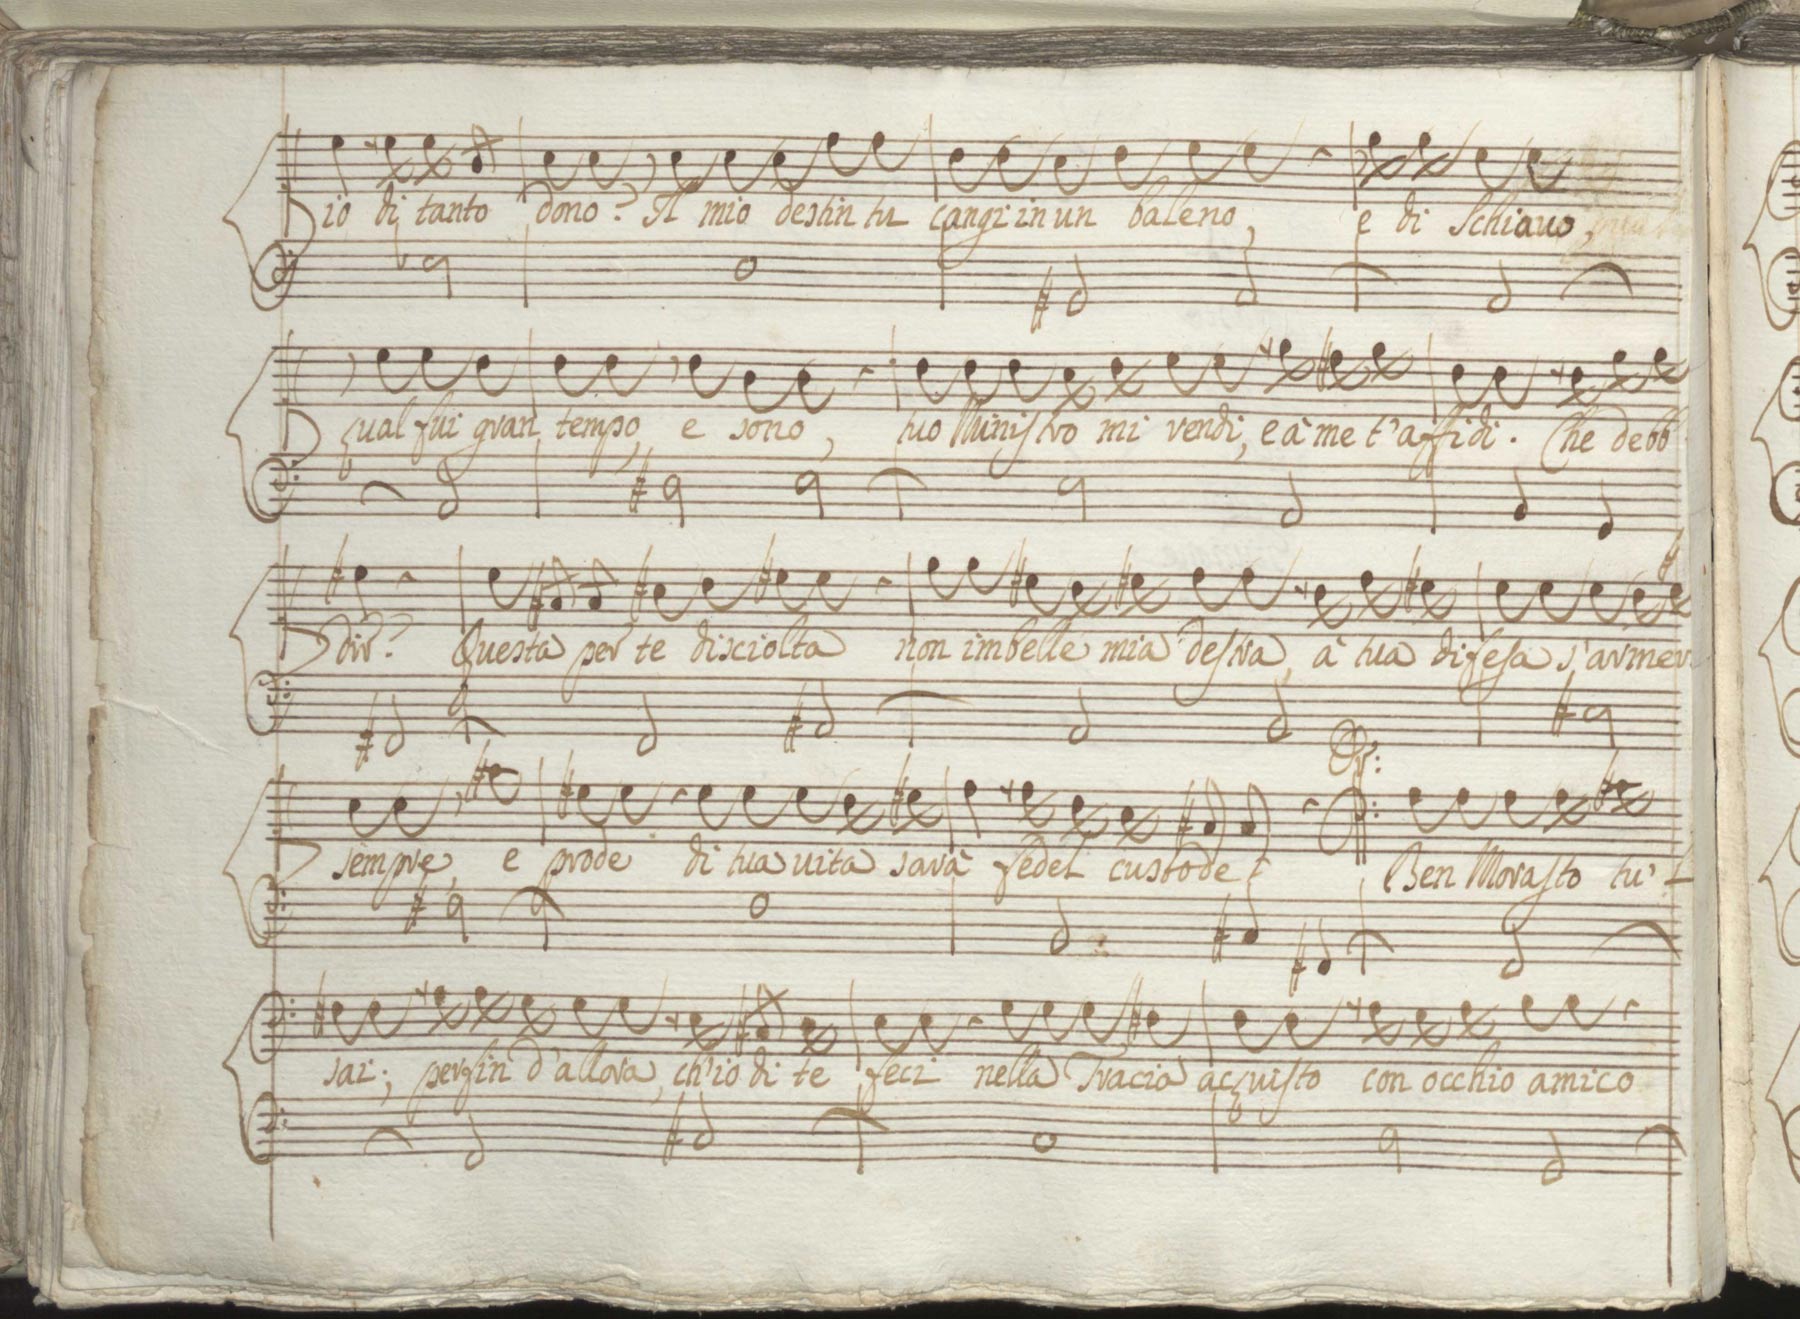 io di tanto dono? Il mio destin tu cangi in un baleno, e di Schiauo,
qual fui gran tempo, e sono, tuo Ministro mi rendi, e à me t'affidi. Che debb
dir? Questa per te disciolta non imbelle mia destra, à tua difesa s'armer
Dr:
sempre, e prode di tua uita sarà fedel custode. Ben Morasto tu'l
sai; perfin d'allora, ch'io di te feci nella Tracia acquisto con occhio amico